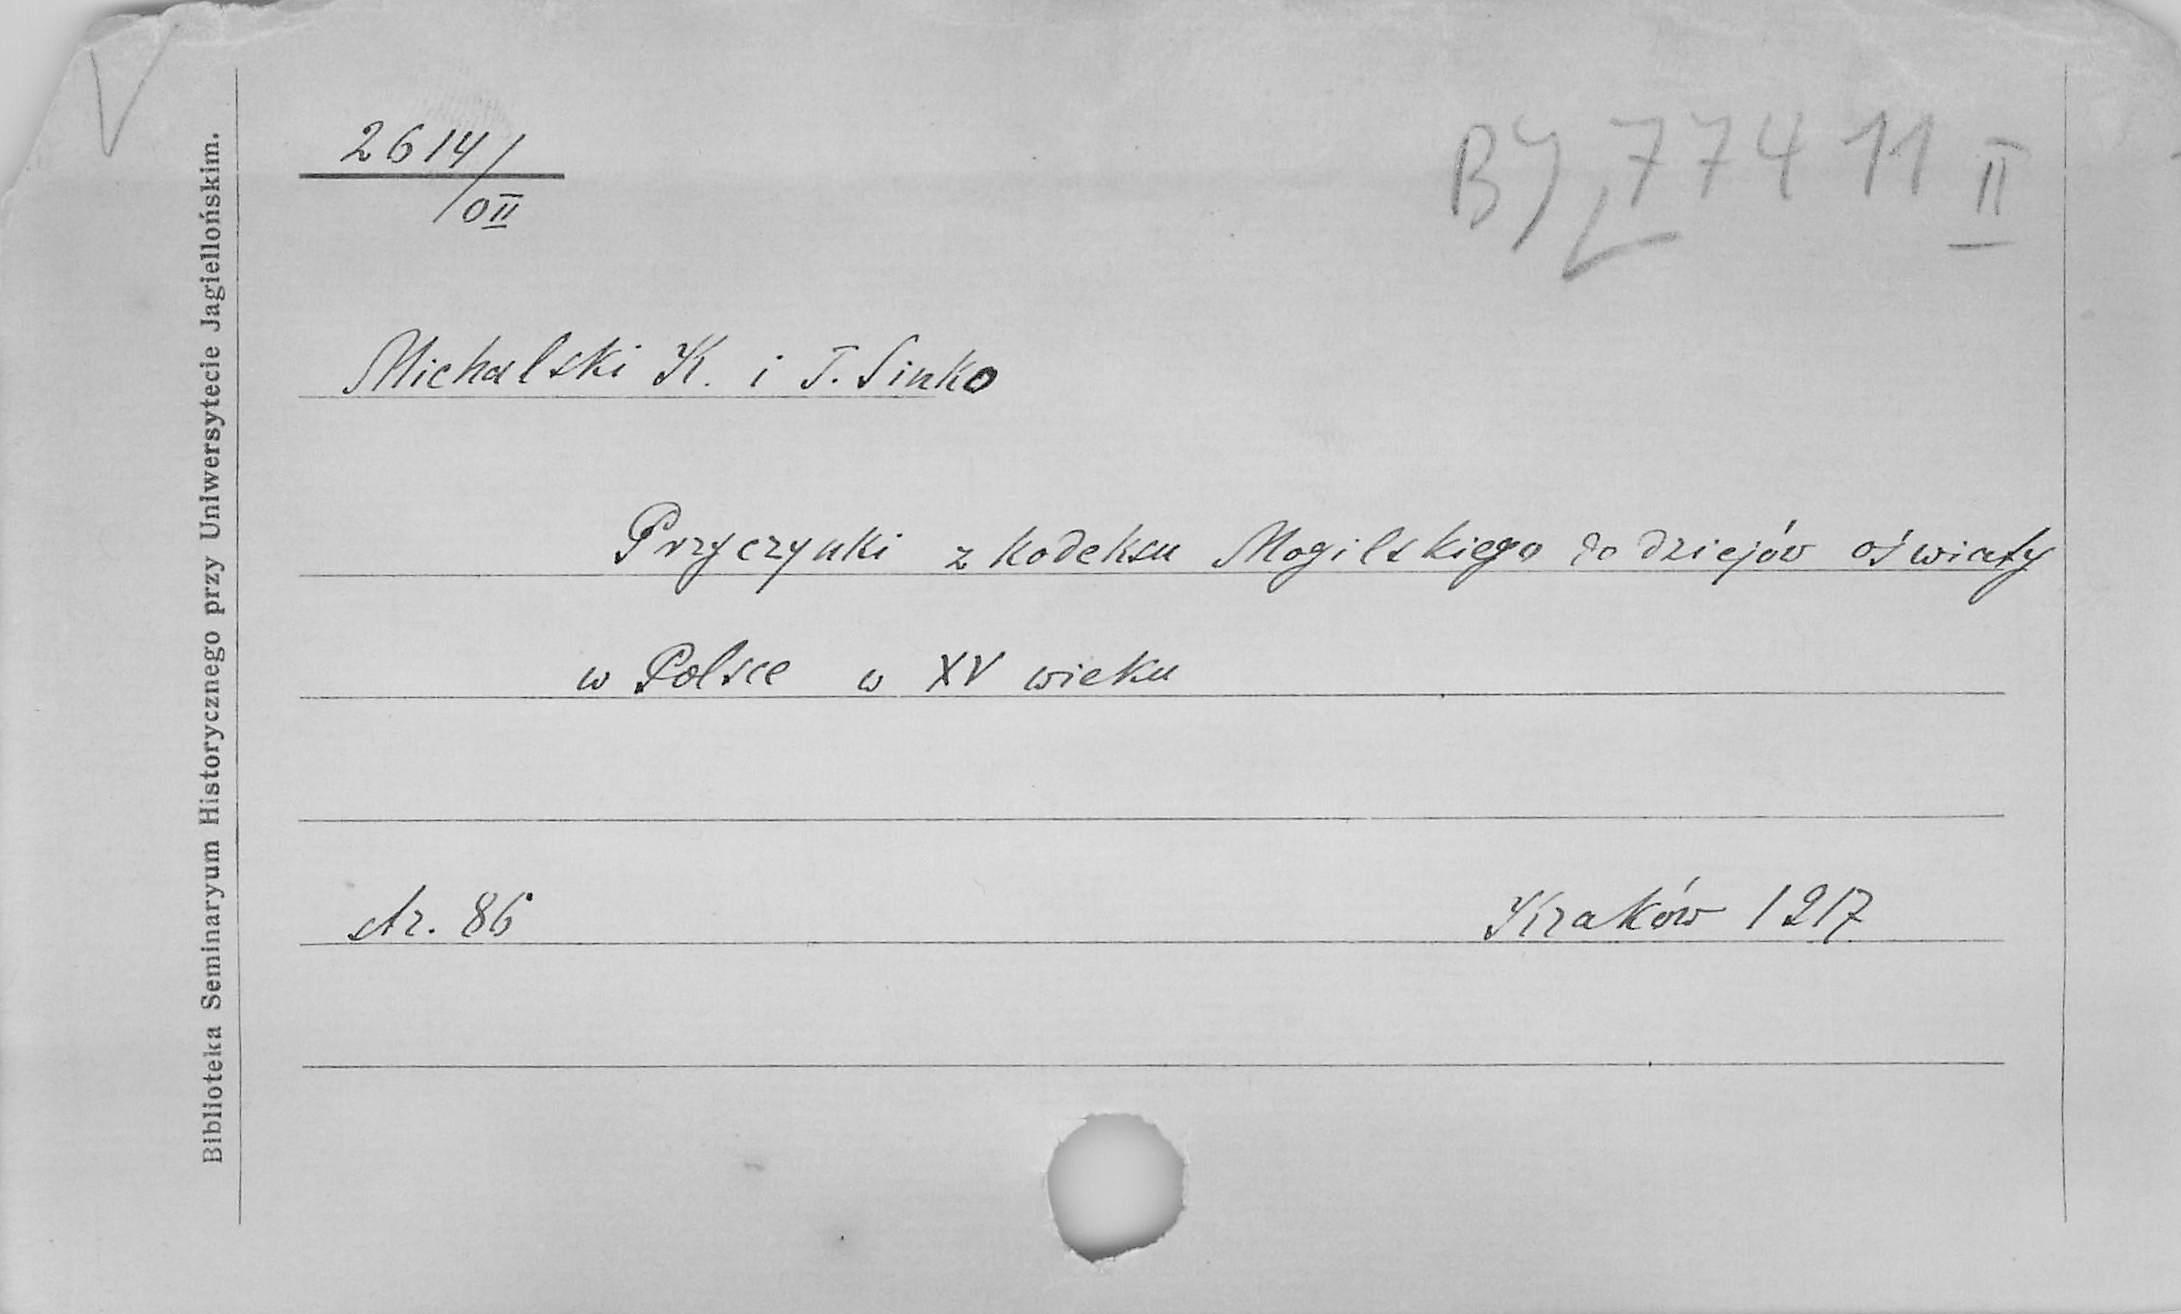 V
2614/
/OII
BJ 77411 II
Michalski K. i T. Sinko
Przyczynki z kodeksu Mogilskiego do dziejów oświaty
w Polsce w XV wieku
str. 86
Kraków 1917
Biblioteka Seminaryum Historycznego przy Uniwersytecie Jagiellońskim.